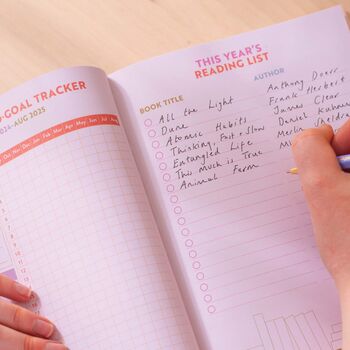 -GOAL TRACKER
2024-AUG 2025
Oct Nov Dec Jan Feb Mar Apr May Jun Jul Aug
THIS YEAR'S
READING LIST
BOOK TITLE AUTHOR
All the Light Anthony Doerr
Dune Frank Herbert
Atomic Habits James Clear
Thinking, Fast + Slow Daniel Kahne
Entangled Life Merlin Sheldra
This Much is True Mi
Animal Farm